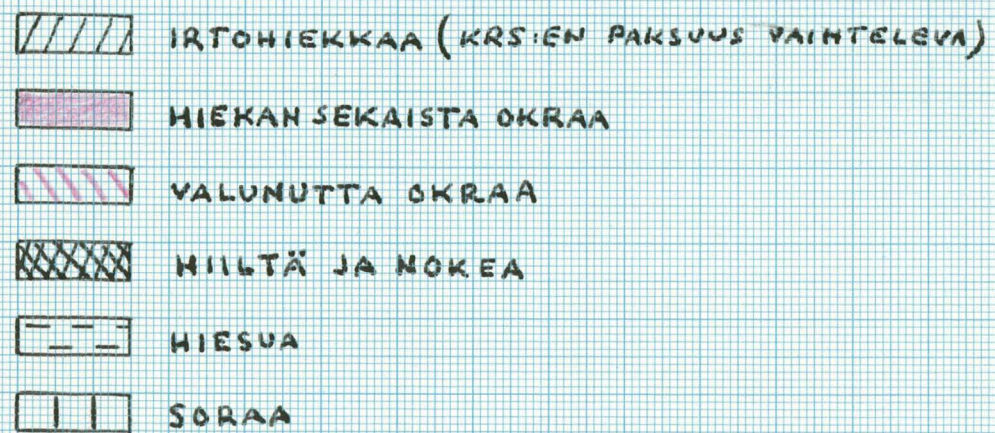 IRTOHIEKKAA (KRS:EN PAKSUUS VAIHTELEVA)
HIEKAN SEKAISTA OKRAA
VALUNUTTA OKRAA
HIILTÄ JA NOKEA
HIESUA
SORAA